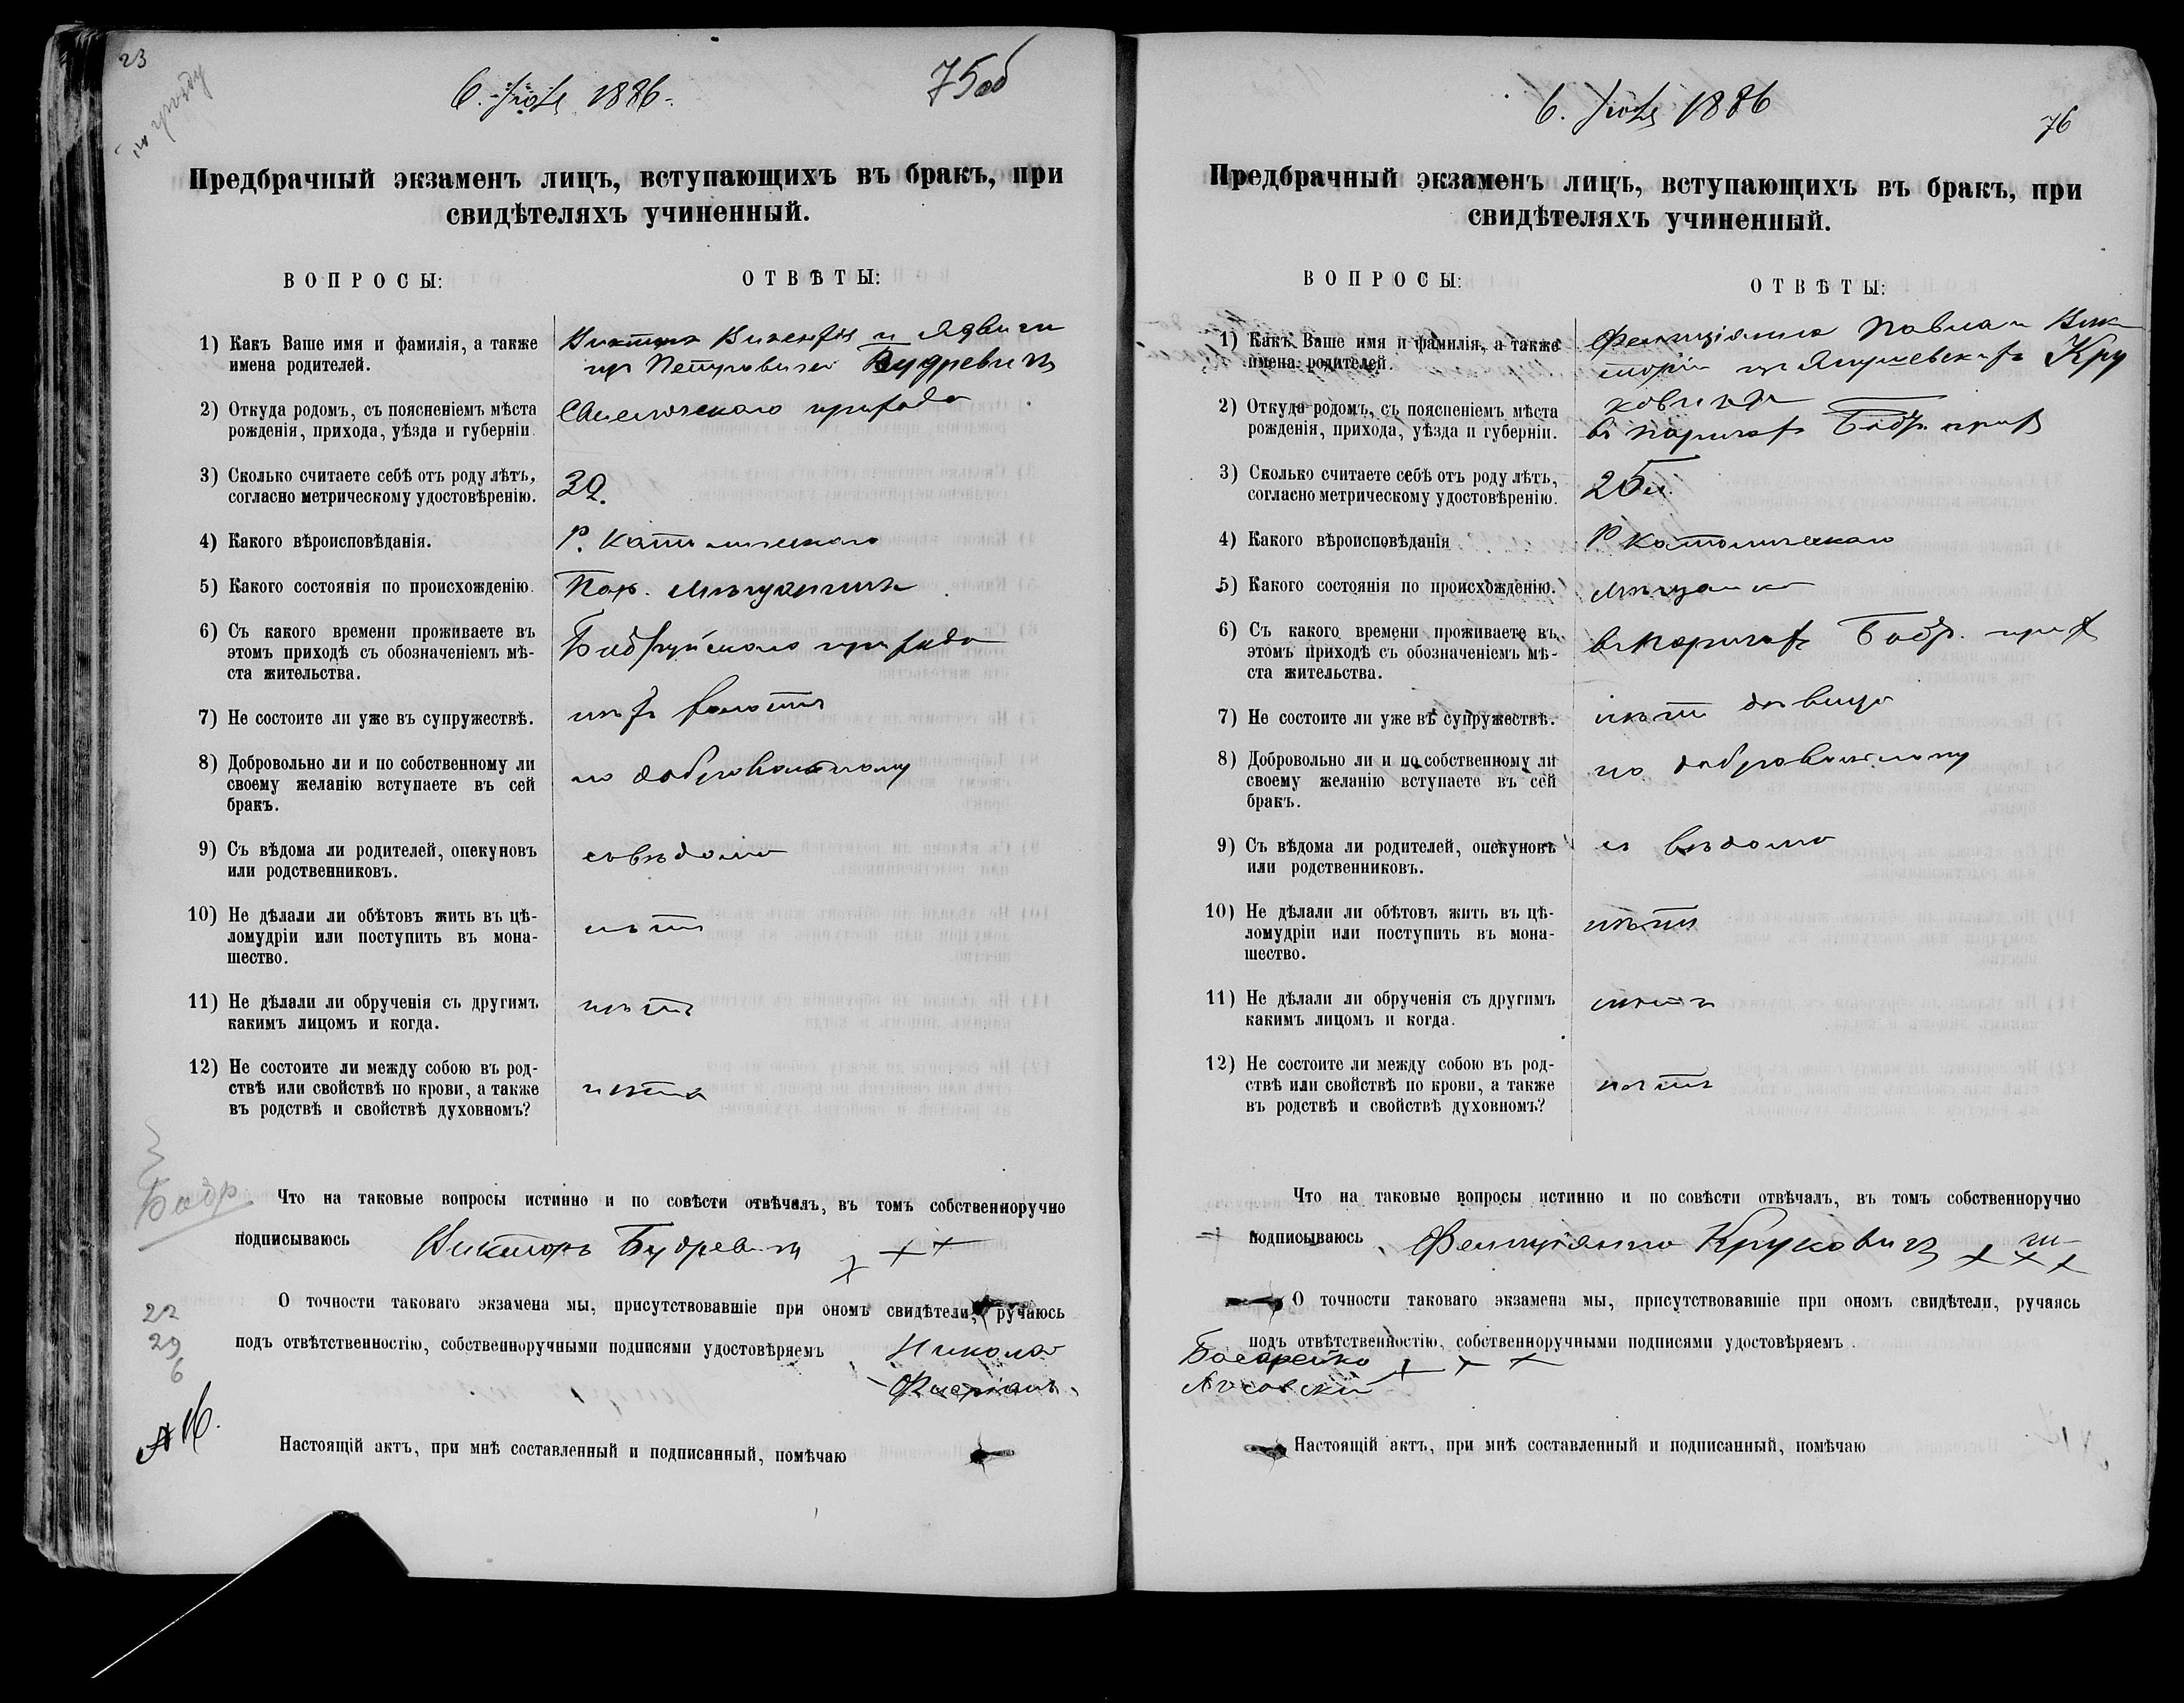 23
6. Іюля 1886.
75об
Предбрачный экзаменъ лицъ, вступающихъ въ бракъ, при
свидѣтеляхъ учиненный.
ВОПРОСЫ:
ОТВѢТЫ:
1) Какъ Ваше имя и фамилія, а также
имена родителей.
Викентія и Ядвиги
Петровичей Будревичъ
2) Откуда родомъ, съ поясненіемъ мѣста
рожденія, прихода, уѣзда и губерніи.
прихода
3) Сколько считаете себѣ отъ роду лѣтъ,
согласно метрическому удостовѣренію.
32.
4) Какого вѣроисповѣданія.
Р. Католическаго
5) Какого состоянія по происхожденію.
6) Съ какого времени проживаете въ
этомъ приходѣ съ обозначеніемъ мѣ-
ста жительства.
Бобруйскаго прихода
7) Не состоите ли уже въ супружествѣ.
8) Добровольно ли и по собственному ли
своему желанію вступаете въ сей
бракъ.
по добровольному
9) Съ вѣдома ли родителей, опекуновъ
или родственниковъ.
съ вѣдома
10) Не дѣлали ли обѣтовъ жить въ цѣ-
ломудріи или поступить въ мона-
шество.
нѣтъ
11) Не дѣлали ли обрученія съ другимъ
какимъ лицомъ и когда.
нѣтъ
12) Не состоите ли между собою въ род-
ствѣ или свойствѣ по крови, а также
въ родствѣ и свойствѣ духовномъ?
нѣтъ
Бобр.
Что на таковые вопросы истинно и по совѣсти отвѣчалъ, въ томъ собственноручно
подписываюсь Викторъ Будревичъ +++
О точности таковаго экзамена мы, присутствовавшіе при ономъ свидѣтели, ручаюсь
подъ отвѣтственностію, собственноручными подписями удостовѣряемъ Николай
Флоріанъ
22
29
6
Настоящій актъ, при мнѣ составленный и подписанный, помѣчаю
6. Іюля 1886
76
Предбрачный экзаменъ лицъ, вступающихъ въ бракъ, при
свидѣтеляхъ учиненный.
ВОПРОСЫ:
ОТВѢТЫ:
1) Какъ Ваше имя и фамилія, а также
имена родителей.
Фелиціянна Павла и Вик-
торіи Кру
2) Откуда родомъ, съ поясненіемъ мѣста
рожденія, прихода, уѣзда и губерніи.
въ Паричахъ Бобр. прих
3) Сколько считаете себѣ отъ роду лѣтъ,
согласно метрическому удостовѣренію.
25 л.
4) Какого вѣроисповѣданія
Р Католическаго
5) Какого состоянія по происхожденію.
мѣщанка
6) Съ какого времени проживаете въ
этомъ приходѣ съ обозначеніемъ мѣ-
ста жительства.
въ Паричахъ Бобр. прих
7) Не состоите ли уже въ супружествѣ.
нѣтъ дѣвица
8) Добровольно ли и по собственному ли
своему желанію вступаете въ сей
бракъ.
по добровольному
9) Съ вѣдома ли родителей, опекуновъ
или родственниковъ.
съ вѣдома
10) Не дѣлали ли обѣтовъ жить въ цѣ-
ломудріи или поступить въ мона-
шество.
нѣтъ
11) Не дѣлали ли обрученія съ другимъ
какимъ лицомъ и когда.
нѣтъ
12) Не состоите ли между собою въ род-
ствѣ или свойствѣ по крови, а также
въ родствѣ и свойствѣ духовномъ?
нѣтъ
Что на таковые вопросы истинно и по совѣсти отвѣчалъ, въ томъ собственноручно
подписываюсь Фелиціянна Круковичъ +++
О точности таковаго экзамена мы, присутствовавшіе при ономъ свидѣтели, ручаясь
подъ отвѣтственностію, собственноручными подписями удостовѣряемъ.
+ + +
Настоящій актъ, при мнѣ составленный и подписанный, помѣчаю